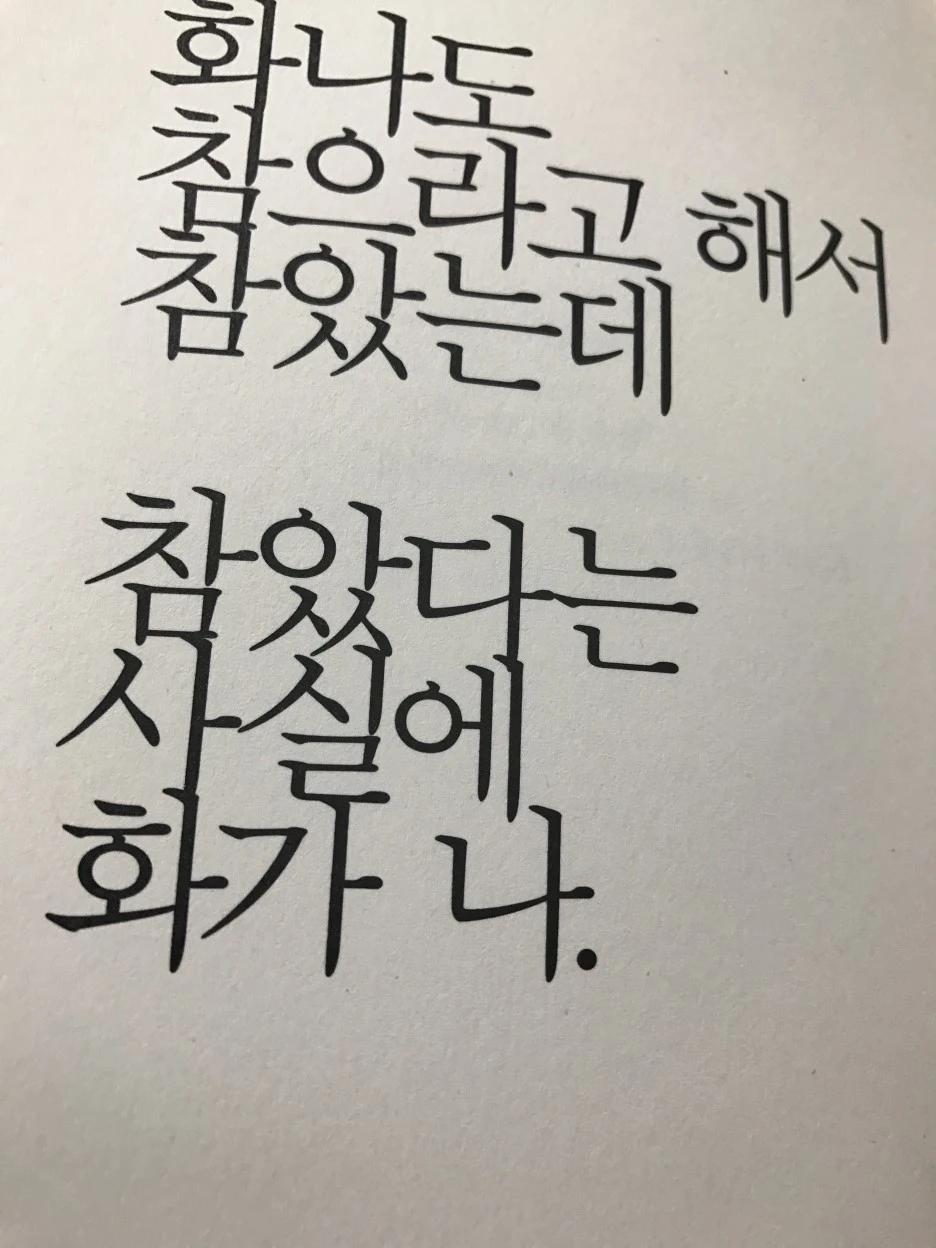 화나도
참으라고 해서
참았는데
참았다는
사실에
화가 나.